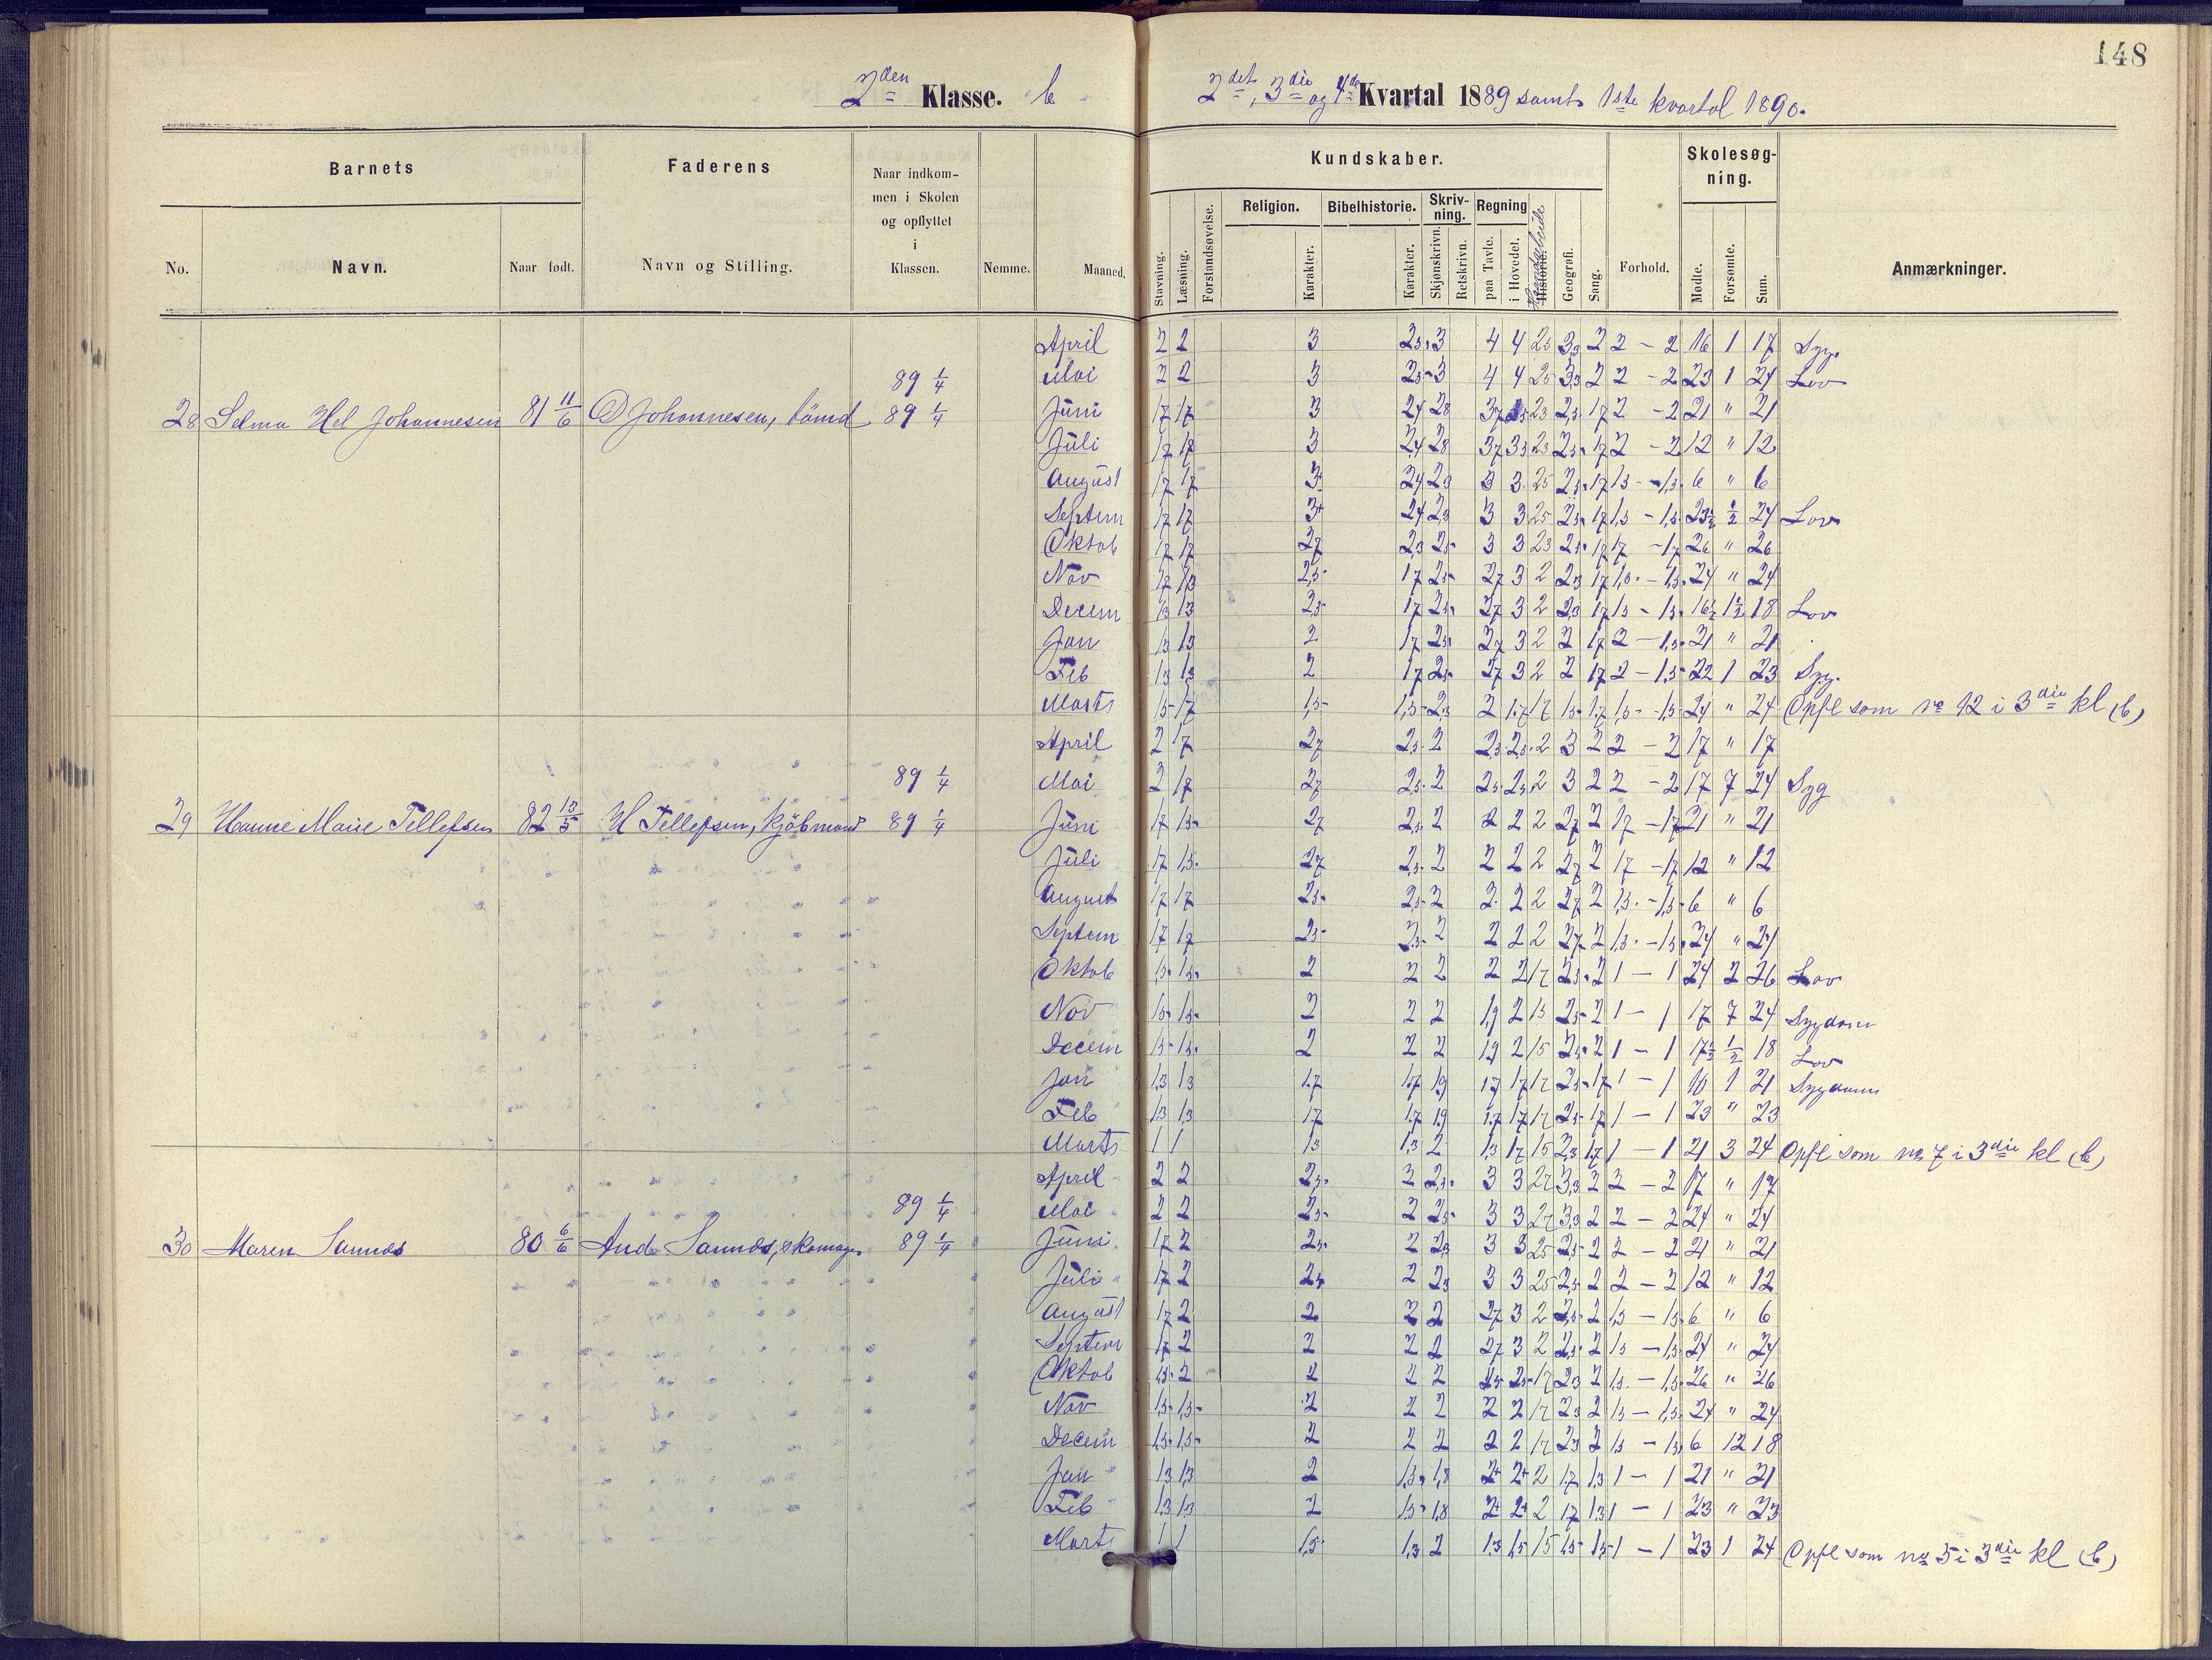 148
2den Klasse. b
2det, 3die og 4de Kvartal 1889 samt 1ste kvartal 1890.
Barnets
Faderens
Naar indkommen i Skolen og opflyttet i Klassen.
Kundskaber.
Skolesøgning.
Religion. Bibelhistorie. Skrivning. Regning
No. Navn. Naar født. Navn og Stilling. Nemme. Maaned. Stavning. Læsning. Forstandsøvelse. Karakter. Karakter. Skjønskrivn. Retskrivn. paa Tavle. i Hovedet. Historie. Haandarbeide Geografi. Sang. Forhold. Mødte. Forsømte. Sum. Anmærkninger.
April 2 2 3 4 4 2 2 - 2 16 1 17 Syg.
89 1/4 Mai 2 2 3 4 4 2 2 - 2 23 1 24 Lov
28 Selma Hel Johannesen 81 11/6 O Johannesen, tømd 89 1/4 Juni 1,7 1,7 3 2 - 2 21 " 21
Juli 3 2 - 2 12 " 12
August 1,7 1,7 3 3 6 " 6
Septem 1,7 1,7 3+ 3 3 23½ ½ 24 Lov
Oktob 1,7 1,7 2,7 3 3 26 " 26
Nov 2,5 1,7 2,5 2,7 3 2 24 " 24
Decem 1,3 1,3 2,5 1,7 2,5 2,7 3 2 16½ 1½ 18 Lov
Jan 1,3 1,3 2 1,7 2,5 2,7 3 2 2 1,7 2 - 1,5 21 " 21
Feb 1,3 1,3 2 1,7 2,5 2,7 3 2 2 1,7 2 - 1,5 22 1 23 Syg.
Marts 1,5 1,7 1,5 1,5 2,3 2 1,7 1,7 1,5 1,7 1,5 - 1,5 24 " 24 Opfl som no 12 i 3die kl (b)
April 2 1,7 2,7 2,5 2 2,5 2,5 2 3 2 2 - 2 17 " 17
89 1/4 Mai 2 1,7 2,7 2,5 2 2,5 2,5 2 3 2 2 - 2 17 7 24 Syg
29 Hanne Marie Tellefsen 82 13/5 H Tellefsen, Kjøbmand 89 1/4 Juni 1,7 1,5 2,7 2,5 2 2 2 2 2,7 2 1,7 - 1,7 21 " 21
Juli 1,7 1,5 2,7 2,5 2 2 2 2 2,7 2 1,7 - 1,7 12 " 12
August 1,7 1,7 2,5 2,5 2 2 2 2 2,7 2 1,5 - 1,5 6 " 6
Septem 1,7 1,7 2,5 2,5 2 2 2 2 2,7 2 1,5 - 1,5 24 " 24
Oktob 1,5 1,5 2 2 2 2 2 1,7 2,5 2 1 - 1 24 2 26 Lov
Nov 1,5 1,5 2 2 2 1,9 2 1,5 2,5 2 1 - 1 17 7 24 Sygdom
Decem 1,5 1,5 2 2 2 1,9 2 1,5 2,5 2 1 - 1 17½ ½ 18 Lov
Jan 1,3 1,3 1,7 1,7 1,9 1,7 1,7 1,7 2,5 1,7 1 - 1 1 21 Sygdom
Feb 1,3 1,3 1,7 1,7 1,9 1,7 1,7 1,7 2,5 1,7 1 - 1 23 " 23
Marts 1 1 1,3 1,3 2 1,3 1,7 1,5 2,3 1,7 1 - 1 21 3 24 Opfl som no 7 i 3die kl (b)
April 2 2 2,5 2 2,5 3 3 2,7 3,3 2 2 - 2 17 " 17
89 1/4 Mai 2 2 2,5 2 2,5 3 3 2,7 3,3 2 2 - 2 24 " 24
30 Maren Sannæs 80 6/6 And Sannæs, skomager 89 1/4 Juni 1,7 2 2,5 2 2,3 3 3 2,5 2,5 2 2 - 2 21 " 21
Juli 1,7 2 2 2,3 3 3 2,5 2,5 2 2 - 2 12 " 12
August 1,7 2 2 2 2 2,7 3 2 2,5 2 1,5 - 1,5 6 " 6
Septem 1,7 2 2 2 2 2,7 3 2 2,5 2 1,5 - 1,5 24 " 24
Oktob 1,5 2 2 2 2 2,5 2,5 1,7 2,3 2 1,5 - 1,5 26 " 26
Nov 1,5 1,5 2 2 2 2 2 1,7 2,3 2 1,5 - 1,5 24 " 24
Decem 1,5 1,5 2 2 2 2 2 1,7 2,3 2 1,5 - 1,5 6 12 18
Jan 1,3 1,3 2 1,5 1,8 2+ 2+ 2 1,7 1,3 1 - 1 21 " 21
Feb 1,3 1,3 2 1,5 1,8 2+ 2+ 2 1,7 1,3 1 - 1 23 " 23
Marts 1 1 1,5 1,3 2 1,3 1,5 1,5 1,5 1,5 1 - 1 23 1 24 Opfl som no 5 i 3die kl (b)